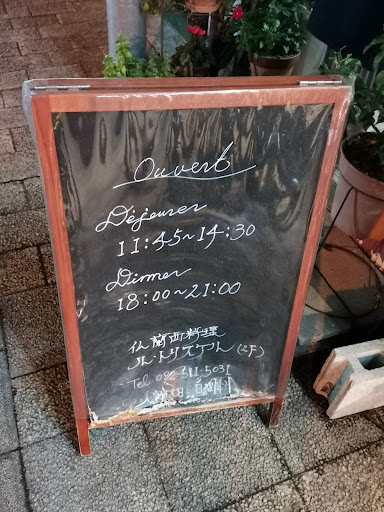 Ouvert
Déjeuner
11:45~14:30
Dinner
18:00~21:00
仏蘭西料理
ル・トリスケル (2F)
Tel 092-511-5031